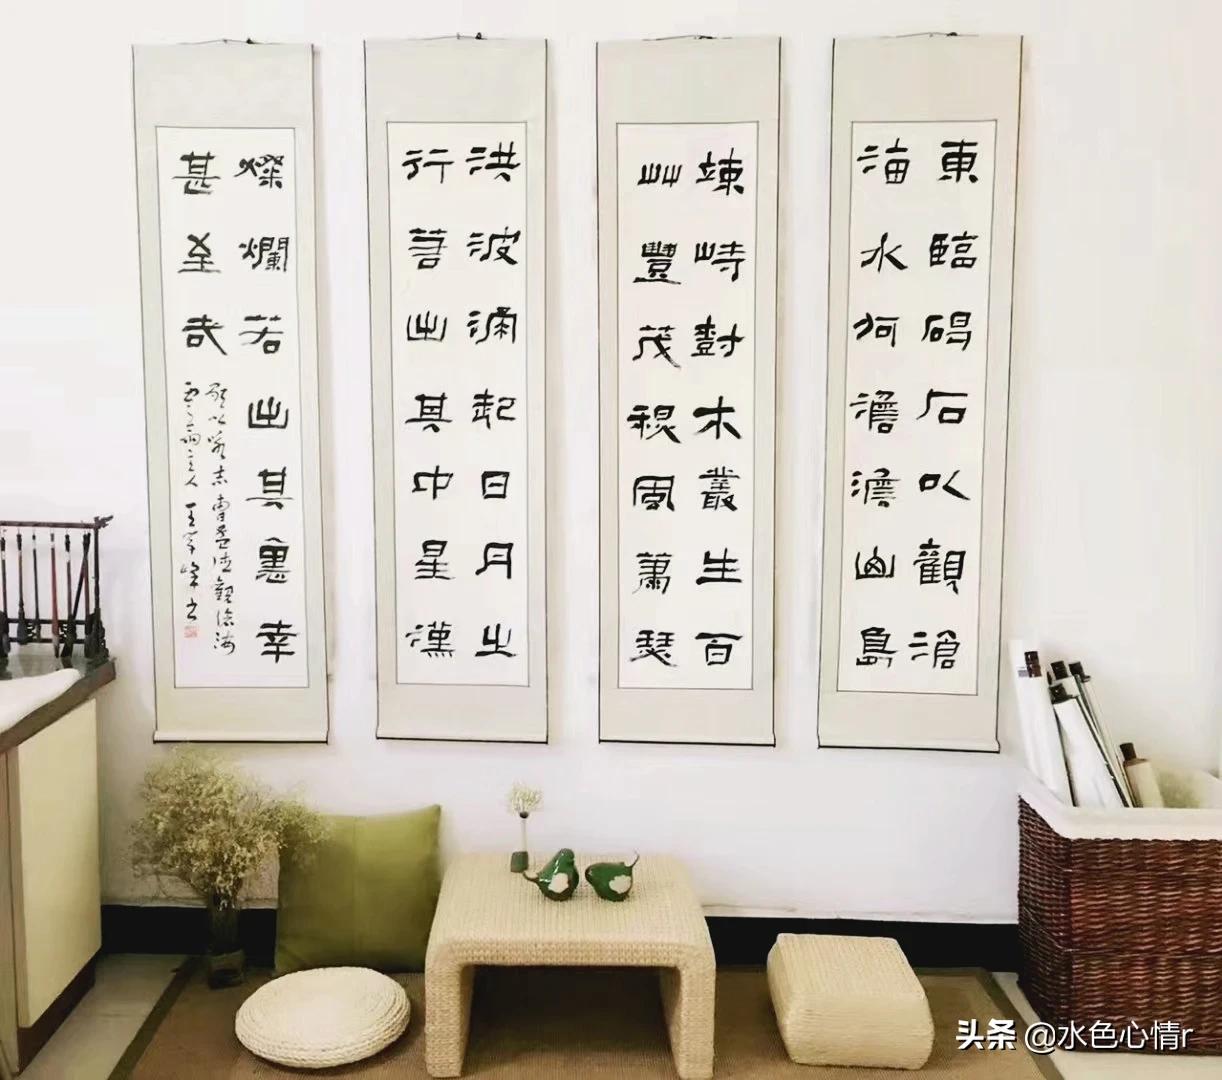 東臨碣石以觀滄
海水何澹澹山島
竦峙樹木叢生百
艸豐茂秋風蕭瑟
洪波涌起日月之
行若出其中星漢
燦爛若出其裏幸
甚至哉
歌以詠志曹孟德觀滄海
主人王軍峰書
头条 @水色心情r